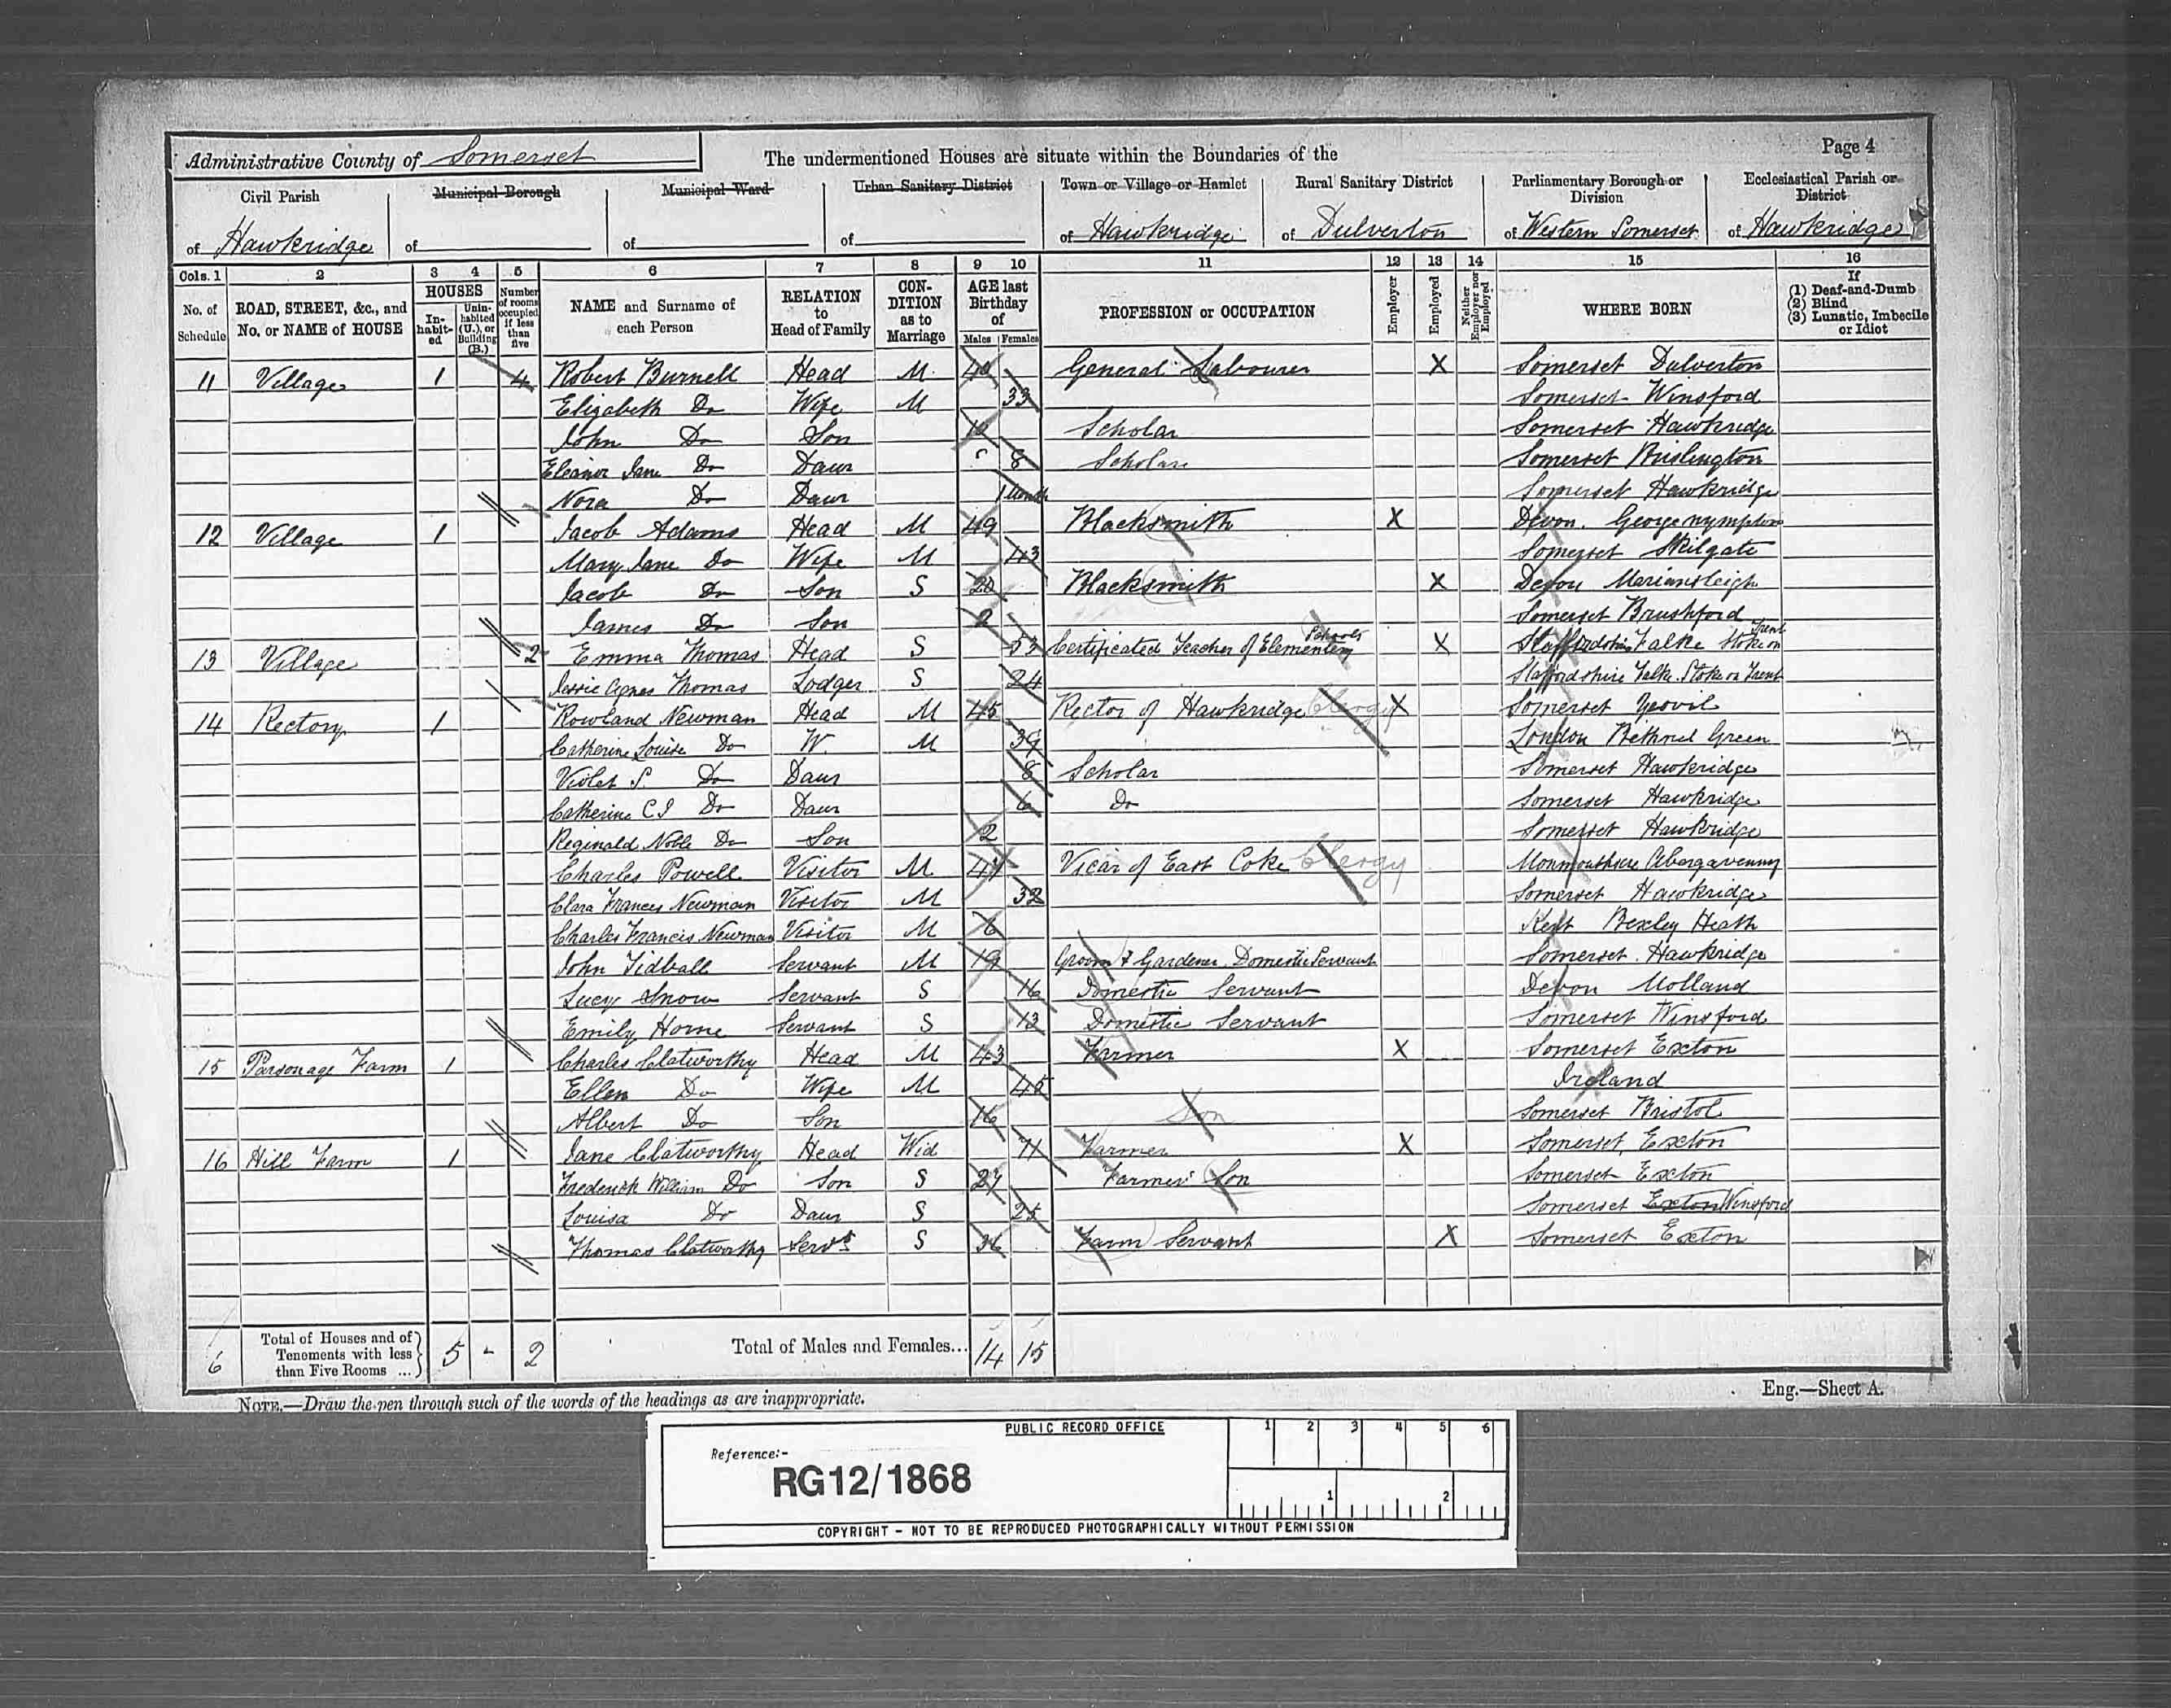 Administrative County of Somerset
The undermentioned Houses are situate within the Boundaries of the
Page 4
Civil Parish
Municipal Borough
Municipal Ward
Urban Sanitary District
Town or Village or Hamlet
Rural Sanitary District
Parliamentary Borough or Division
Ecclesiastical Parish or District
of Hawkridge
of
of
of
of Hawkridge
of Dulverton
of Western Somerset
of Hawkridge
Cols. 1 2 3 4 5 6 7 8 9 10 11 12 13 14 15 16
No. of Schedule
ROAD, STREET, &c., and No. or NAME of HOUSE
HOUSES
In-habit-ed
Unin-habited (U.), or Building (B.)
Number of rooms occupied if less than five
NAME and Surname of each Person
RELATION to Head of Family
CON-DITION as to Marriage
AGE last Birthday of
Males Females
PROFESSION or OCCUPATION
Employer
Employed
Neither Employer nor Employed
WHERE BORN
If
(1) Deaf-and-Dumb
(2) Blind
(3) Lunatic, Imbecile or Idiot
11 Village 1 4 Robert Burnell Head M 40 General Labourer X Somerset Dulverton
Elizabeth Do Wife M 33 Somerset Winsford
John Do Son 10 Scholar Somerset Hawkridge
Eleanor Jane Do Daur 8 Scholar Somerset Brislington
Nora Do Daur 1 Month Somerset Hawkridge
12 Village 1 Jacob Adams Head M 49 Blacksmith X Devon. Georgenympton
Mary Jane Do Wife M 43 Somerset Skilgate
Jacob Do Son S 20 Blacksmith X Devon Mariansleigh
James Do Son 2 Somerset Brushford
13 Village 2 Emma Thomas Head S 53 Certificated Teacher of Elementary Schools X Staffordshire Stoke on Trent
Jessie Agnes Thomas Lodger S 24 Staffordshire Stoke on Trent
14 Rectory 1 Rowland Newman Head M 45 Rector of Hawkridge Clergy X Somerset Yeovil
Catherine Louise Do W. M 39 London Bethnel Green
Violet S. Do Daur 8 Scholar Somerset Hawkridge
Catherine C I Do Daur 6 Do Somerset Hawkridge
Reginald Noble Do Son 2 Somerset Hawkridge
Charles Powell Visitor M 47 Vicar of East Coke Clergy Monmouthshire Abergavenny
Clara Frances Newman Visitor M 32 Somerset Hawkridge
Charles Francis Newman Visitor M 6 Kent Bexley Heath
John Tidball Servant M 19 Groom & Gardener Domestic Servant Somerset. Hawkridge
Lucy Snow Servant S 16 Domestic Servant Devon Molland
Emily Horne Servant S 13 Domestic Servant Somerset Winsford
15 Parsonage Farm 1 Charles Clatworthy Head M 43 Farmer X Somerset Exton
Ellen Do Wife M 45 Ireland
Albert Do Son 16 Son Somerset Bristol
16 Hill Farm 1 Jane Clatworthy Head Wid 71 Farmer X Somerset, Exton
Frederick William Do Son S 27 Farmer's Son Somerset Exton
Louisa Do Daur S 25 Somerset Exton Winsford
Thomas Clatworthy Servt S 36 Farm Servant X Somerset Exton
6 Total of Houses and of Tenements with less than Five Rooms ... 5 - 2 Total of Males and Females... 14 15
NOTE.—Draw the pen through such of the words of the headings as are inappropriate.
Eng.—Sheet A.
PUBLIC RECORD OFFICE
1 2 3 4 5 6
Reference:-
RG12/1868
1 2
COPYRIGHT - NOT TO BE REPRODUCED PHOTOGRAPHICALLY WITHOUT PERMISSION